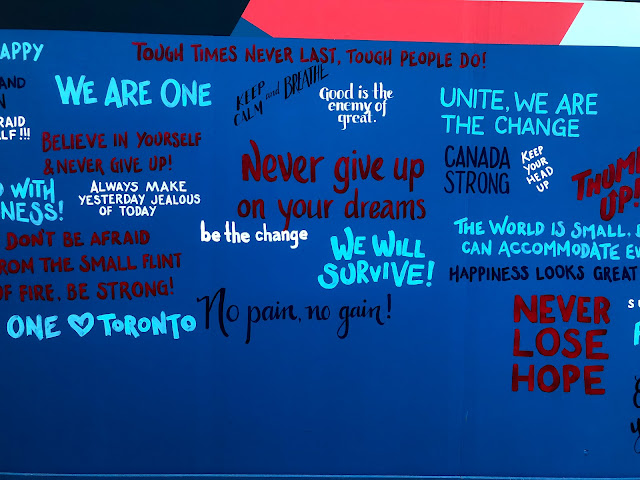 APPY
TOUGH TIMES NEVER LAST, TOUGH PEOPLE DO!
AND
WE ARE ONE
KEEP CALM and BREATHE
Good is the
enemy of
great.
UNITE, WE ARE
THE CHANGE
RAID
LF!!!
BELIEVE IN YOURSELF
& NEVER GIVE UP!
Never give up
on your dreams
CANADA
STRONG
KEEP
YOUR
HEAD
UP
THUMBS
UP!
WITH
NESS!
ALWAYS MAKE
YESTERDAY JEALOUS
OF TODAY
be the change
WE WILL
SURVIVE!
THE WORLD IS SMALL.
CAN ACCOMMODATE
HAPPINESS LOOKS GREAT
DON'T BE AFRAID
FROM THE SMALL FLINT
OF FIRE, BE STRONG!
ONE ♡ TORONTO
No pain, no gain!
NEVER
LOSE
HOPE